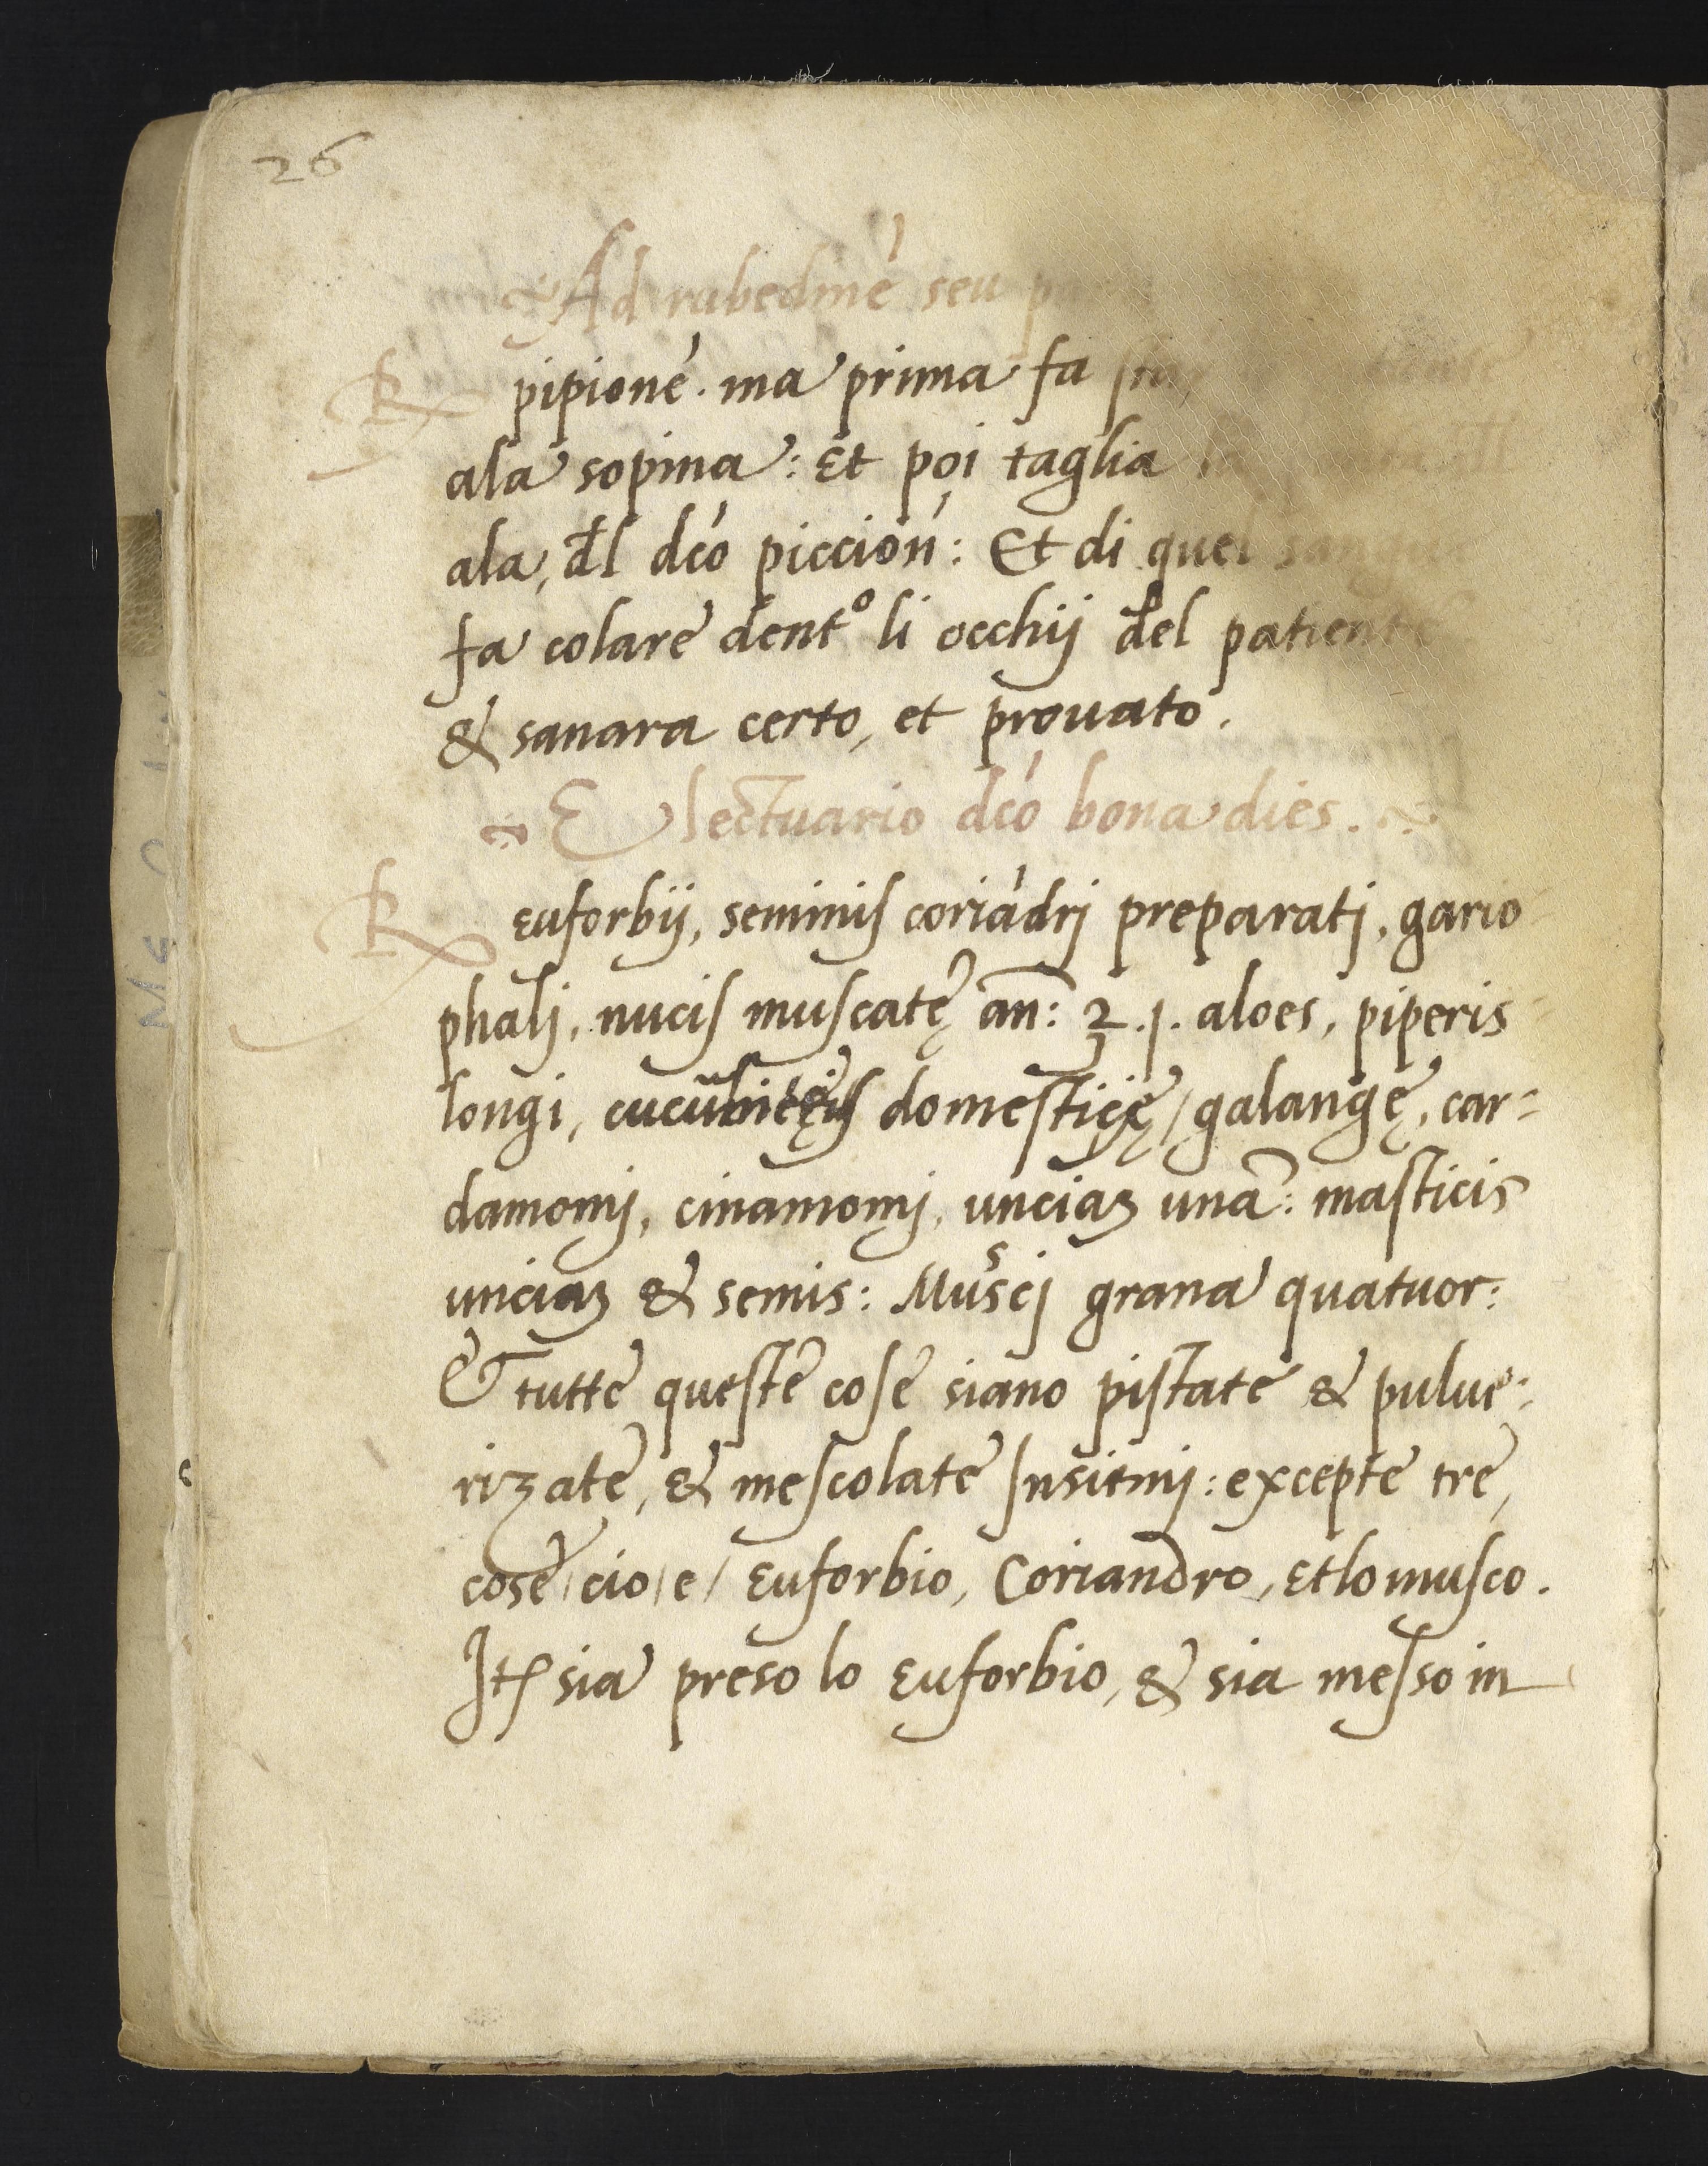 26
Ad rabedine seu
℞ pipione. ma prima fa star
ala sopina: Et poi taglia la
ala, dl dcó piccion: Et di quel sangue
fa colare dentº li occhij del patiente
& sanara certo, et prouato.
Electuario dcó bona dies.
℞ euforbij, seminis coriãdrj preparatj, gario
phalj, nucis muscatę an: ℥.j. aloes, piperis
longi, domesticę, galangę, car=
damomj, cinamomj, unciaʒ unã: masticis
unciaʒ & semis: Muscj grana quatuor:
Et tutte queste cose siano pistate & pulue:
rizate, & mescolate Insiemj: excepte tre,
cose, cio, e, Euforbio, Coriandro, Et lo musco.
Itꝫ sia preso lo Euforbio, & sia messo in